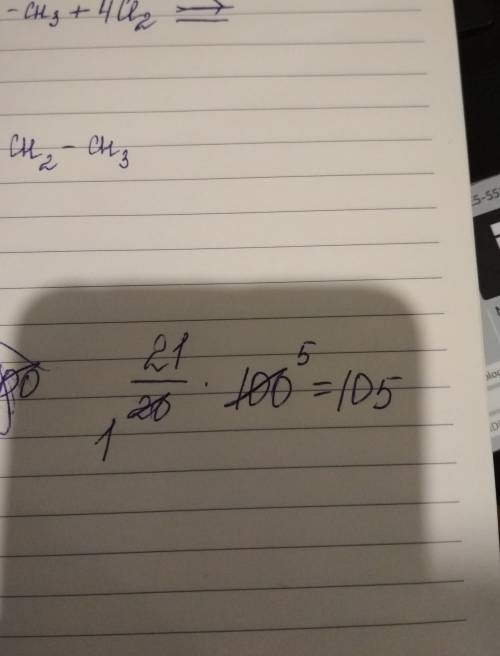 -CH₃ + 4Cl₂ ⇒
CH₂ - CH₃
21/20 · 100 5 = 105
1